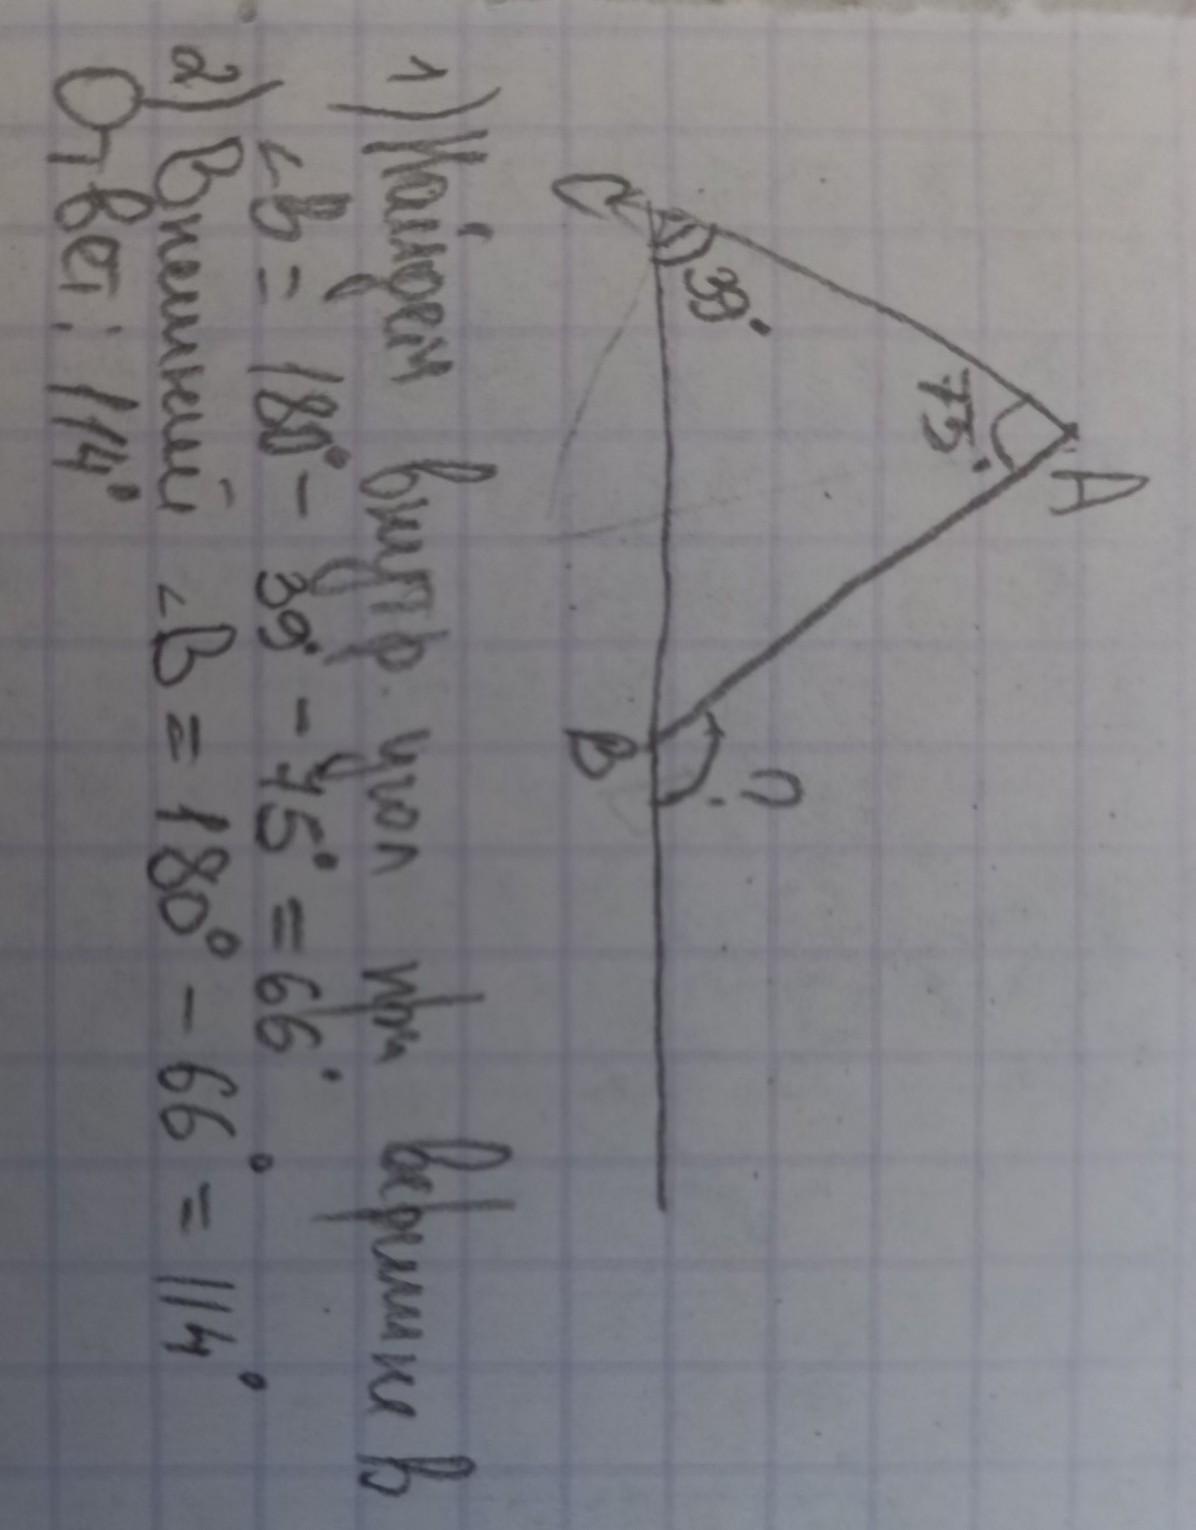 A
75°
C
39°
?
B
1) Найдем внутр. угол при вершине B
∠B = 180° - 39° - 75° = 66°
2) Внешний ∠B = 180° - 66° = 114°
Ответ: 114°